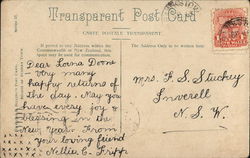 Transparent Post Card
CARTE POSTALE TRANSPARENT
If posted to any Address within the
Commonwealth or New Zealand, this
Space may be used for communication.
The Address Only to be written here
Dear Lorna Doone
Very many
happy returns of
the day. May you
have every joy &
blessing in the
New Year. From
your loving friend
Nellie C. Tripp
Mrs. F. S. Stuckey
Inverell
N. S. W